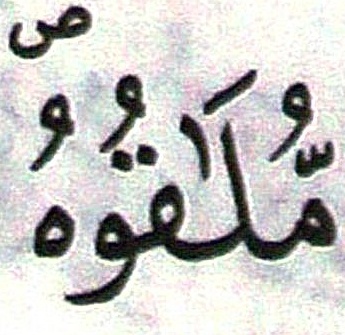 مُّلَٰقُوهُ ص